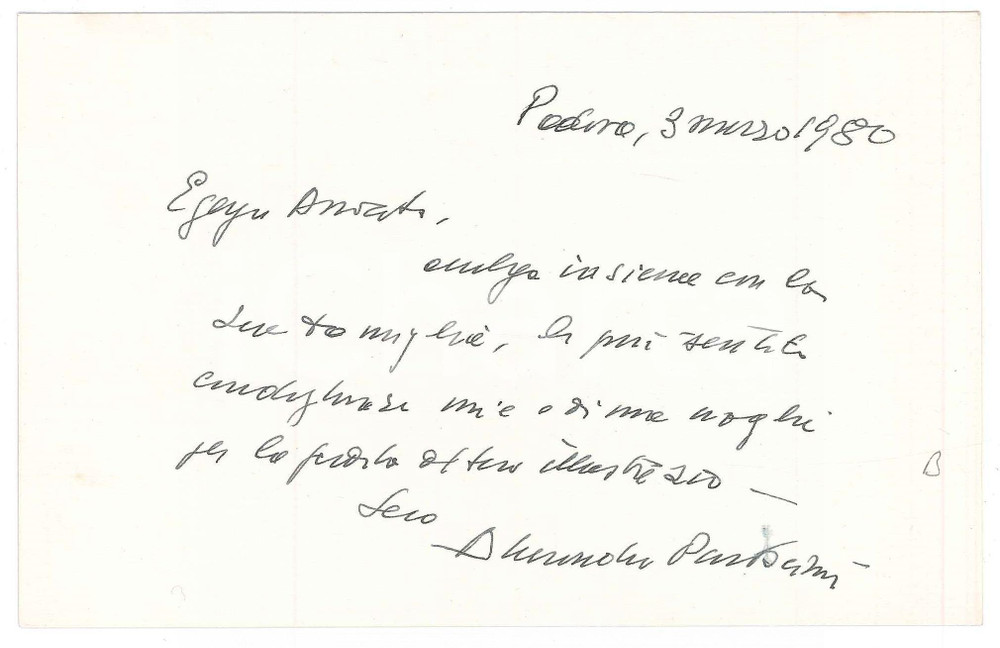 Padova, 3 marzo 1980
Egregio Avvocato,
accolga insieme con la
Sua famiglia, le più sentite
condoglianze mie e di mia moglie
per la perdita del suo illustre zio —
Suo
B